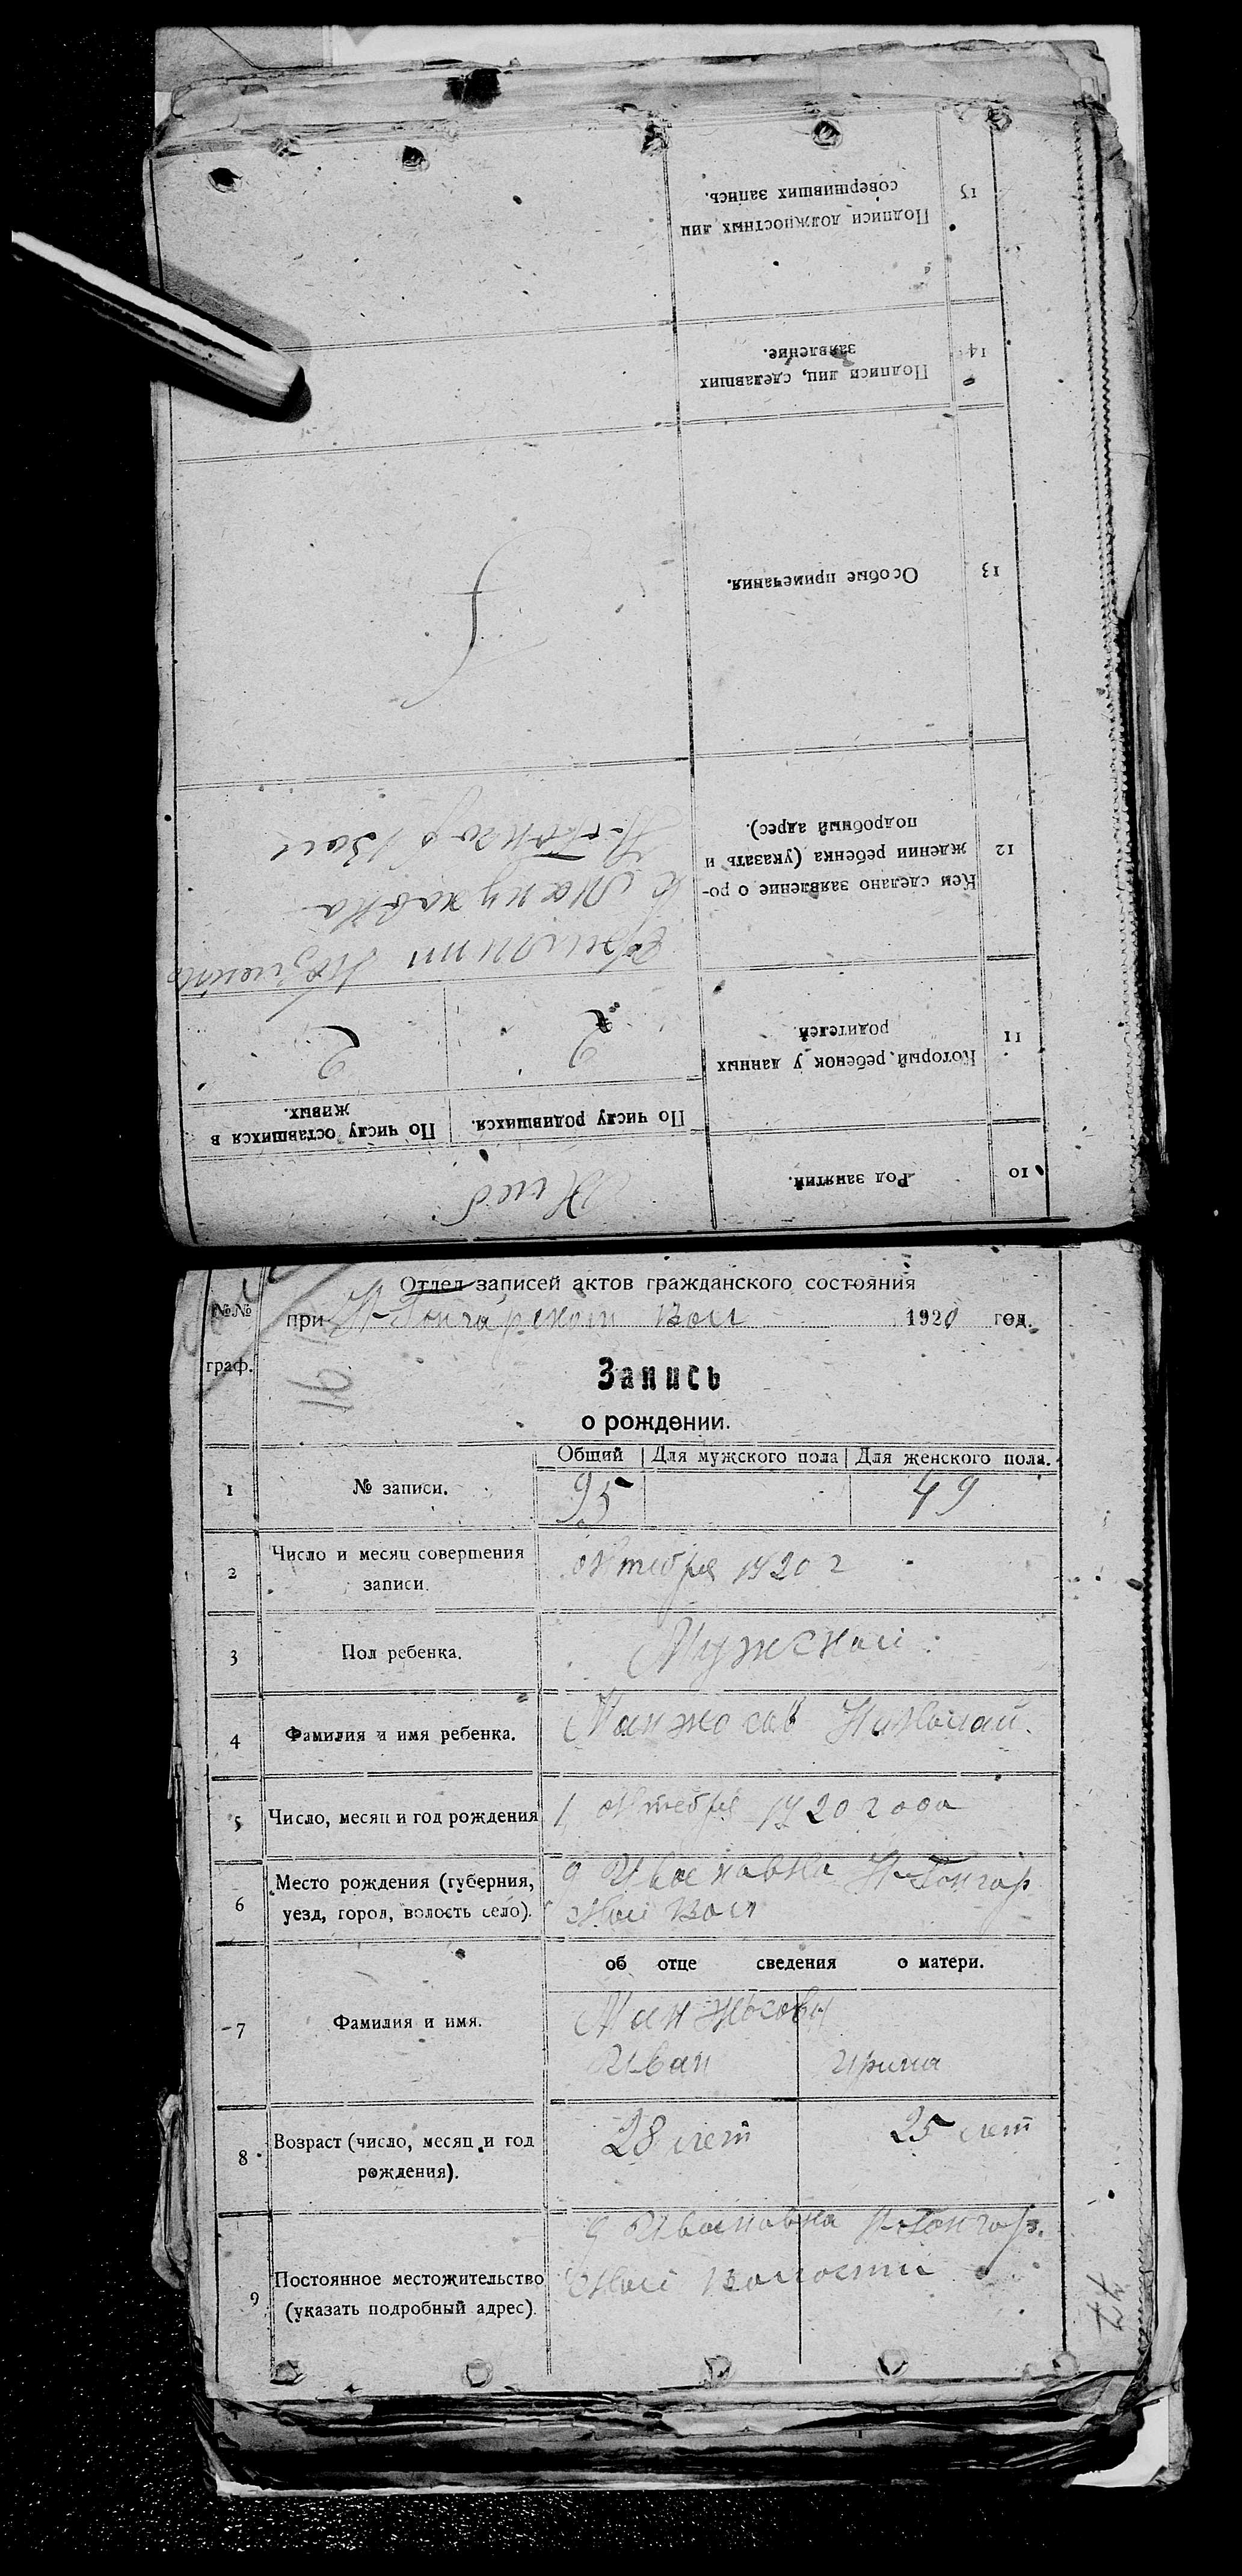 Отдел записей актов гражданского состояния
№№ граф.
при Н-Гончарской Вол 1920 год.
16
Запись
о рождении.
Общий Для мужского пола Для женского пола.
1 № записи. 95 49
2 Число и месяц совершения записи. октебря 1920 г
3 Пол ребенка. Мужской
4 Фамилия и имя ребенка. Манжосов Николай.
5 Число, месяц и год рождения 1 октебря 1920 года
6 Место рождения (губерния, уезд, город, волость село). Н-Гончар
ской Вол
об отце сведения о матери.
7 Фамилия и имя. Манжосовы
Иван Ирина
8 Возраст (число, месяц и год рождения). 28 лет 25 лет
9 Постоянное местожительство (указать подробный адрес). Н-Гончар.
ской Волости
10 Род занятий. Хлеб
11 Который ребенок у данных родителей
По числу родившихся. По числу оставшихся в живых.
2 2
12 Кем сделано заявление о рождении ребенка (указать и подробный адрес).
Н-Гонча Вол
13 Особые примечания.
14 Подписи лиц, сделавших заявление.
15 Подписи должностных лиц совершивших запись.